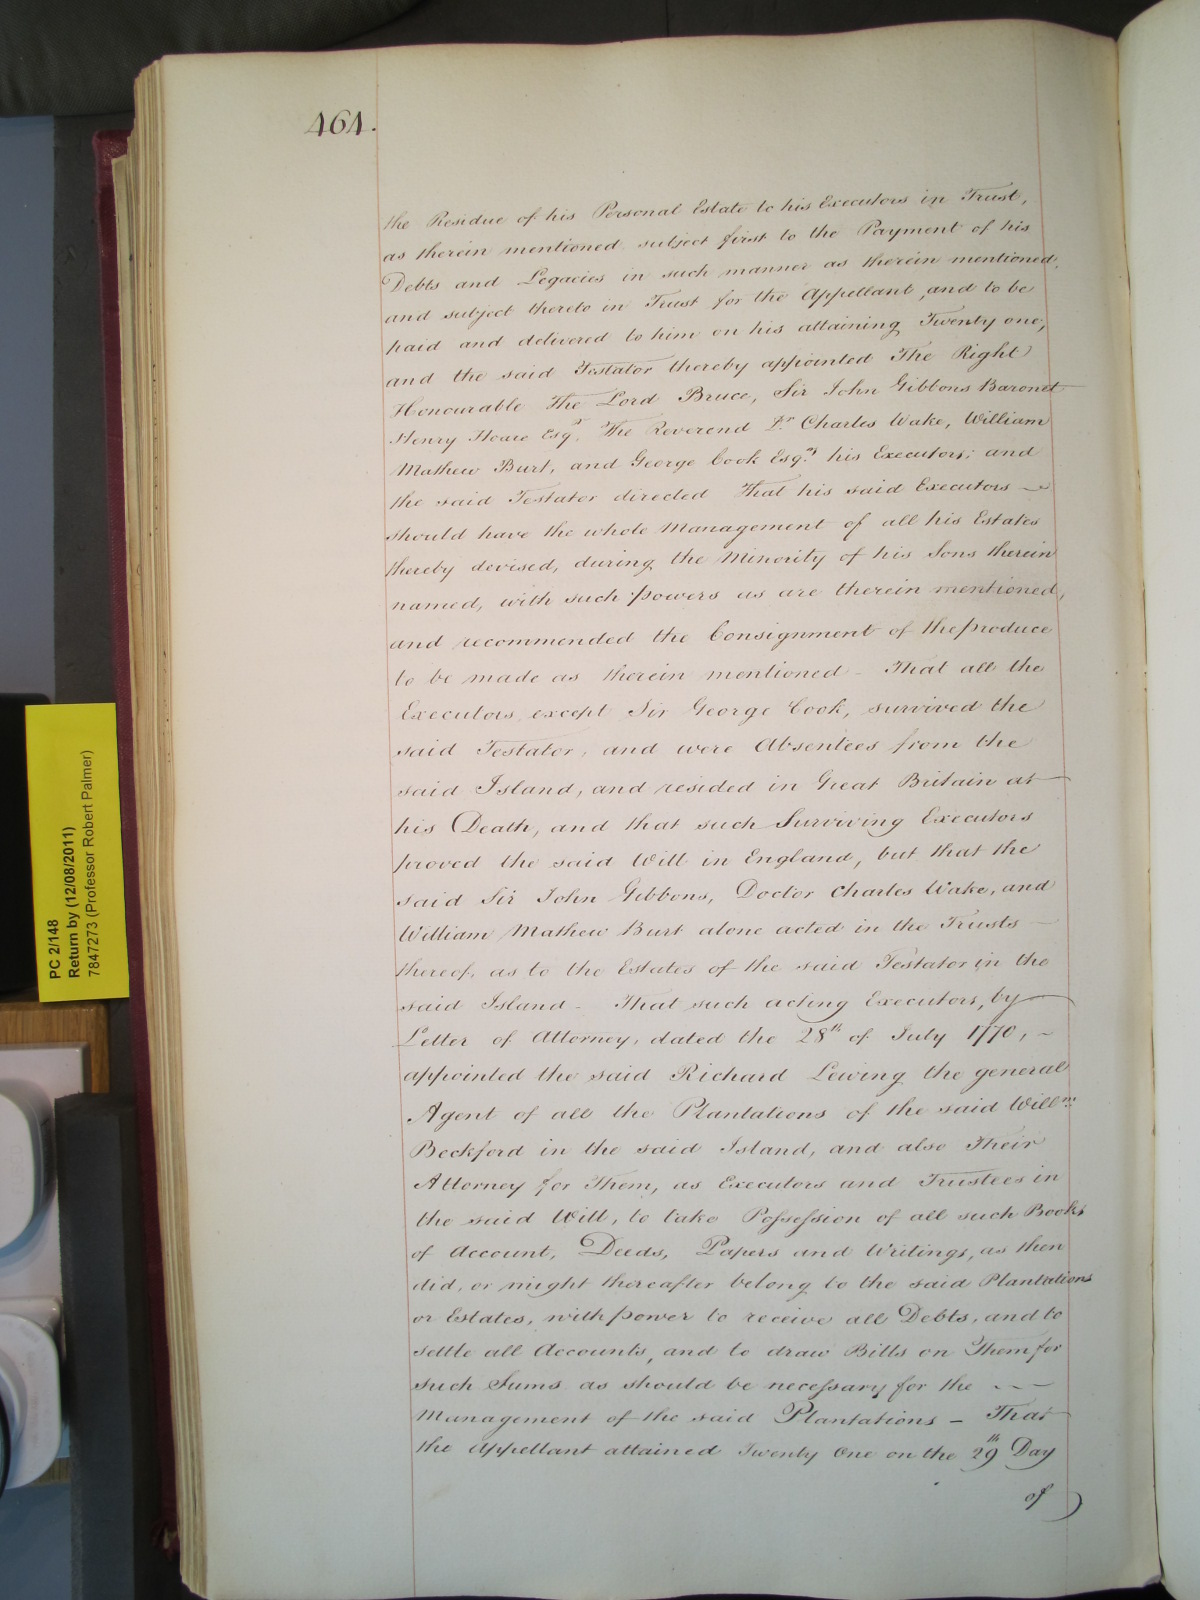 464.
the Residue of his Personal Estate to his Executors in Trust,
as therein mentioned subject first to the Payment of his
Debts and Legacies in such manner as therein mentioned,
and subject thereto in Trust for the Appellant, and to be
paid and delivered to him on his attaining Twenty one;
and the said Testator thereby appointed The Right
Honourable The Lord Bruce, Sir John Gibbons Baronet
Henry Hoare Esqr. The Reverend Dr. Charles Wake, William
Mathew Burt, and George Cook Esqrs. his Executors; and
the said Testator directed That his said Executors
should have the whole Management of all his Estates
thereby devised, during the Minority of his Sons therein
named, with such powers as are therein mentioned,
and recommended the Consignment of the produce
to be made as therein mentioned - That all the
Executors, except Sir George Cook, survived the
said Testator, and were Absentees from the
said Island, and resided in Great Britain at
his Death, and that such Surviving Executors
proved the said Will in England, but that the
said Sir John Gibbons, Doctor Charles Wake, and
William Mathew Burt alone acted in the Trusts
thereof, as to the Estates of the said Testator in the
said Island - That such acting Executors, by
Letter of Attorney, dated the 28th of July 1770, ~
appointed the said Richard Lewing the general
Agent of all the Plantations of the said Willm.
Beckford in the said Island, and also Their
Attorney for Them, as Executors and Trustees in
the said Will, to take Possession of all such Books
of Account, Deeds, Papers and Writings, as then
did, or might thereafter belong to the said Plantations
or Estates, with power to receive all Debts, and to
settle all Accounts, and to draw Bills on Them for
such Sums as should be necessary for the - - -
Management of the said Plantations - That
the Appellant attained Twenty One on the 29th Day
of
PC 2/148
Return by (12/08/2011)
7847273 (Professor Robert Palmer)